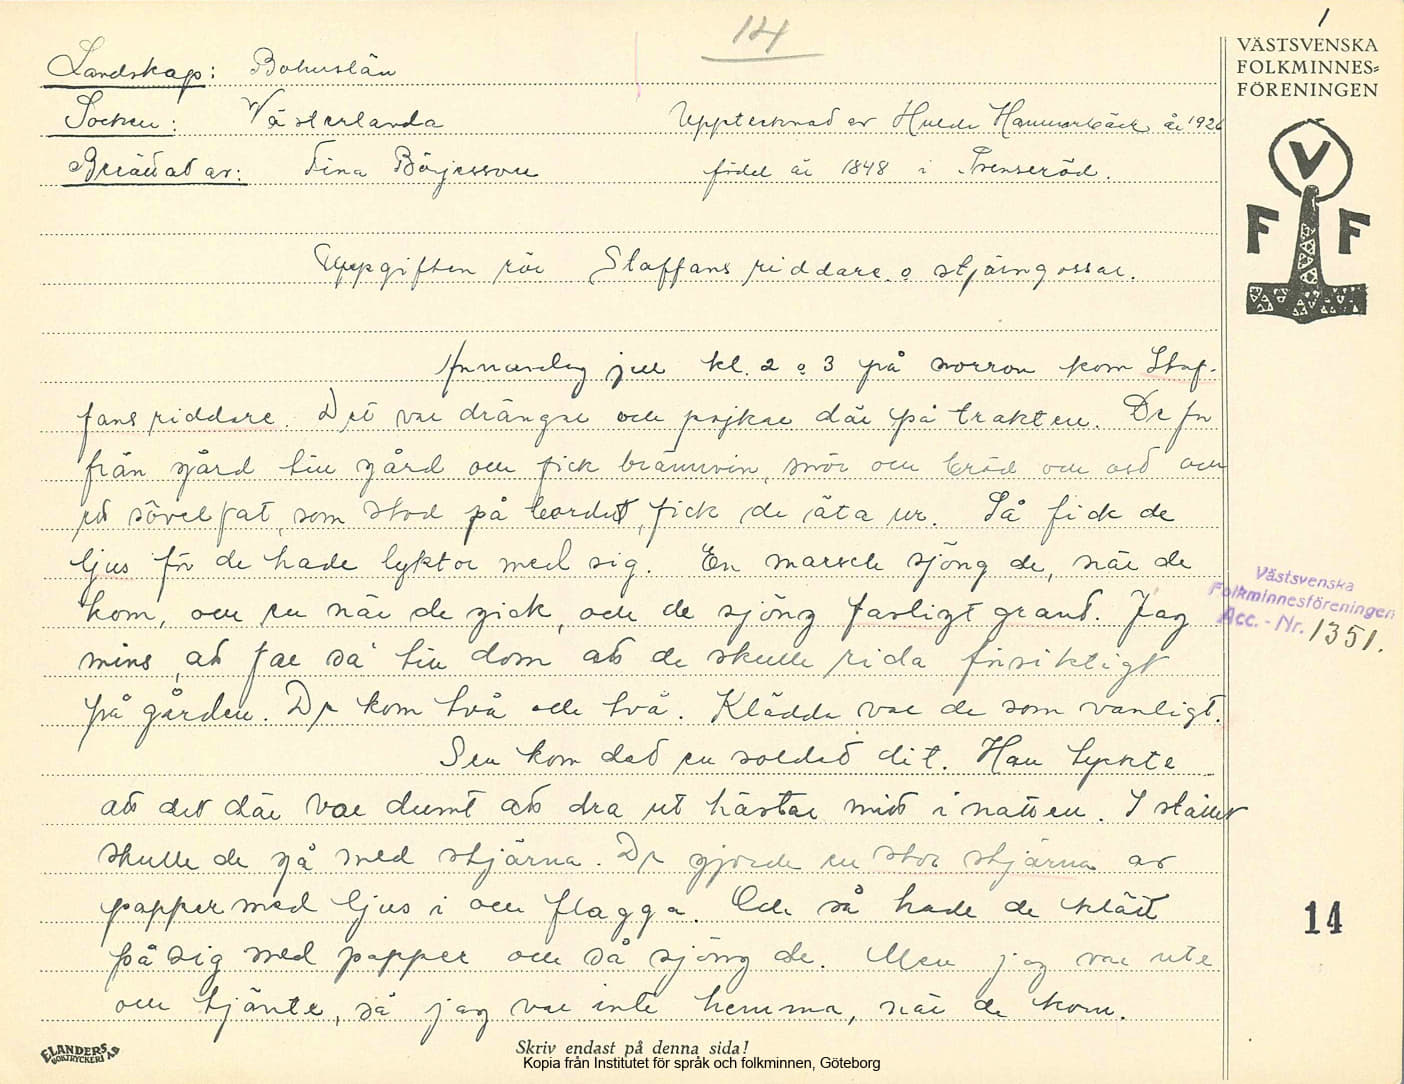 14
1
VÄSTSVENSKA
FOLKMINNES=
FÖRENINGEN
Landskap: Bohuslän
Socken: Västerlanda
Upptecknad av Hulda Hammarbäck år 1926
Berättat av: Tina Börjesson
född år 1848 i Trenseröd.
V
F F
Uppgiften rör Staffans riddare o stjärngossar.
Annandag jul kl. 2 o 3 på morron kom Staf-
fans riddare. Det var drängar och pojkar där på trakten. De for
från gård till gård och fick brännvin, smör och bröd och ost och
ett sövelfat, som stod på bordet, fick de äta ur. Så fick de
ljus för de hade lyktor med sig. En marsch sjöng de, när de
kom, och en när de gick, och de sjöng farligt grant. Jag
mins, att far sa till dom att de skulle rida försiktigt
på gården. De kom två och två. Klädda var de som vanligt.
Sen kom det en soldat dit. Han tyckte
att det där var dumt att dra ut hästar mitt i natten. I stället
skulle de gå med stjärna. De gjorde en stor stjärna av
papper med ljus i och flagga. Och så hade de klätt
på sig med papper och så sjöng de. Men jag var ute
och tjänte, så jag var inte hemma, när de kom.
Västsvenska
Folkminnesföreningen
Acc. - Nr. 1351.
14
ELANDERS
BOKTRYCKERI AB
Skriv endast på denna sida!
Kopia från Institutet för språk och folkminnen, Göteborg